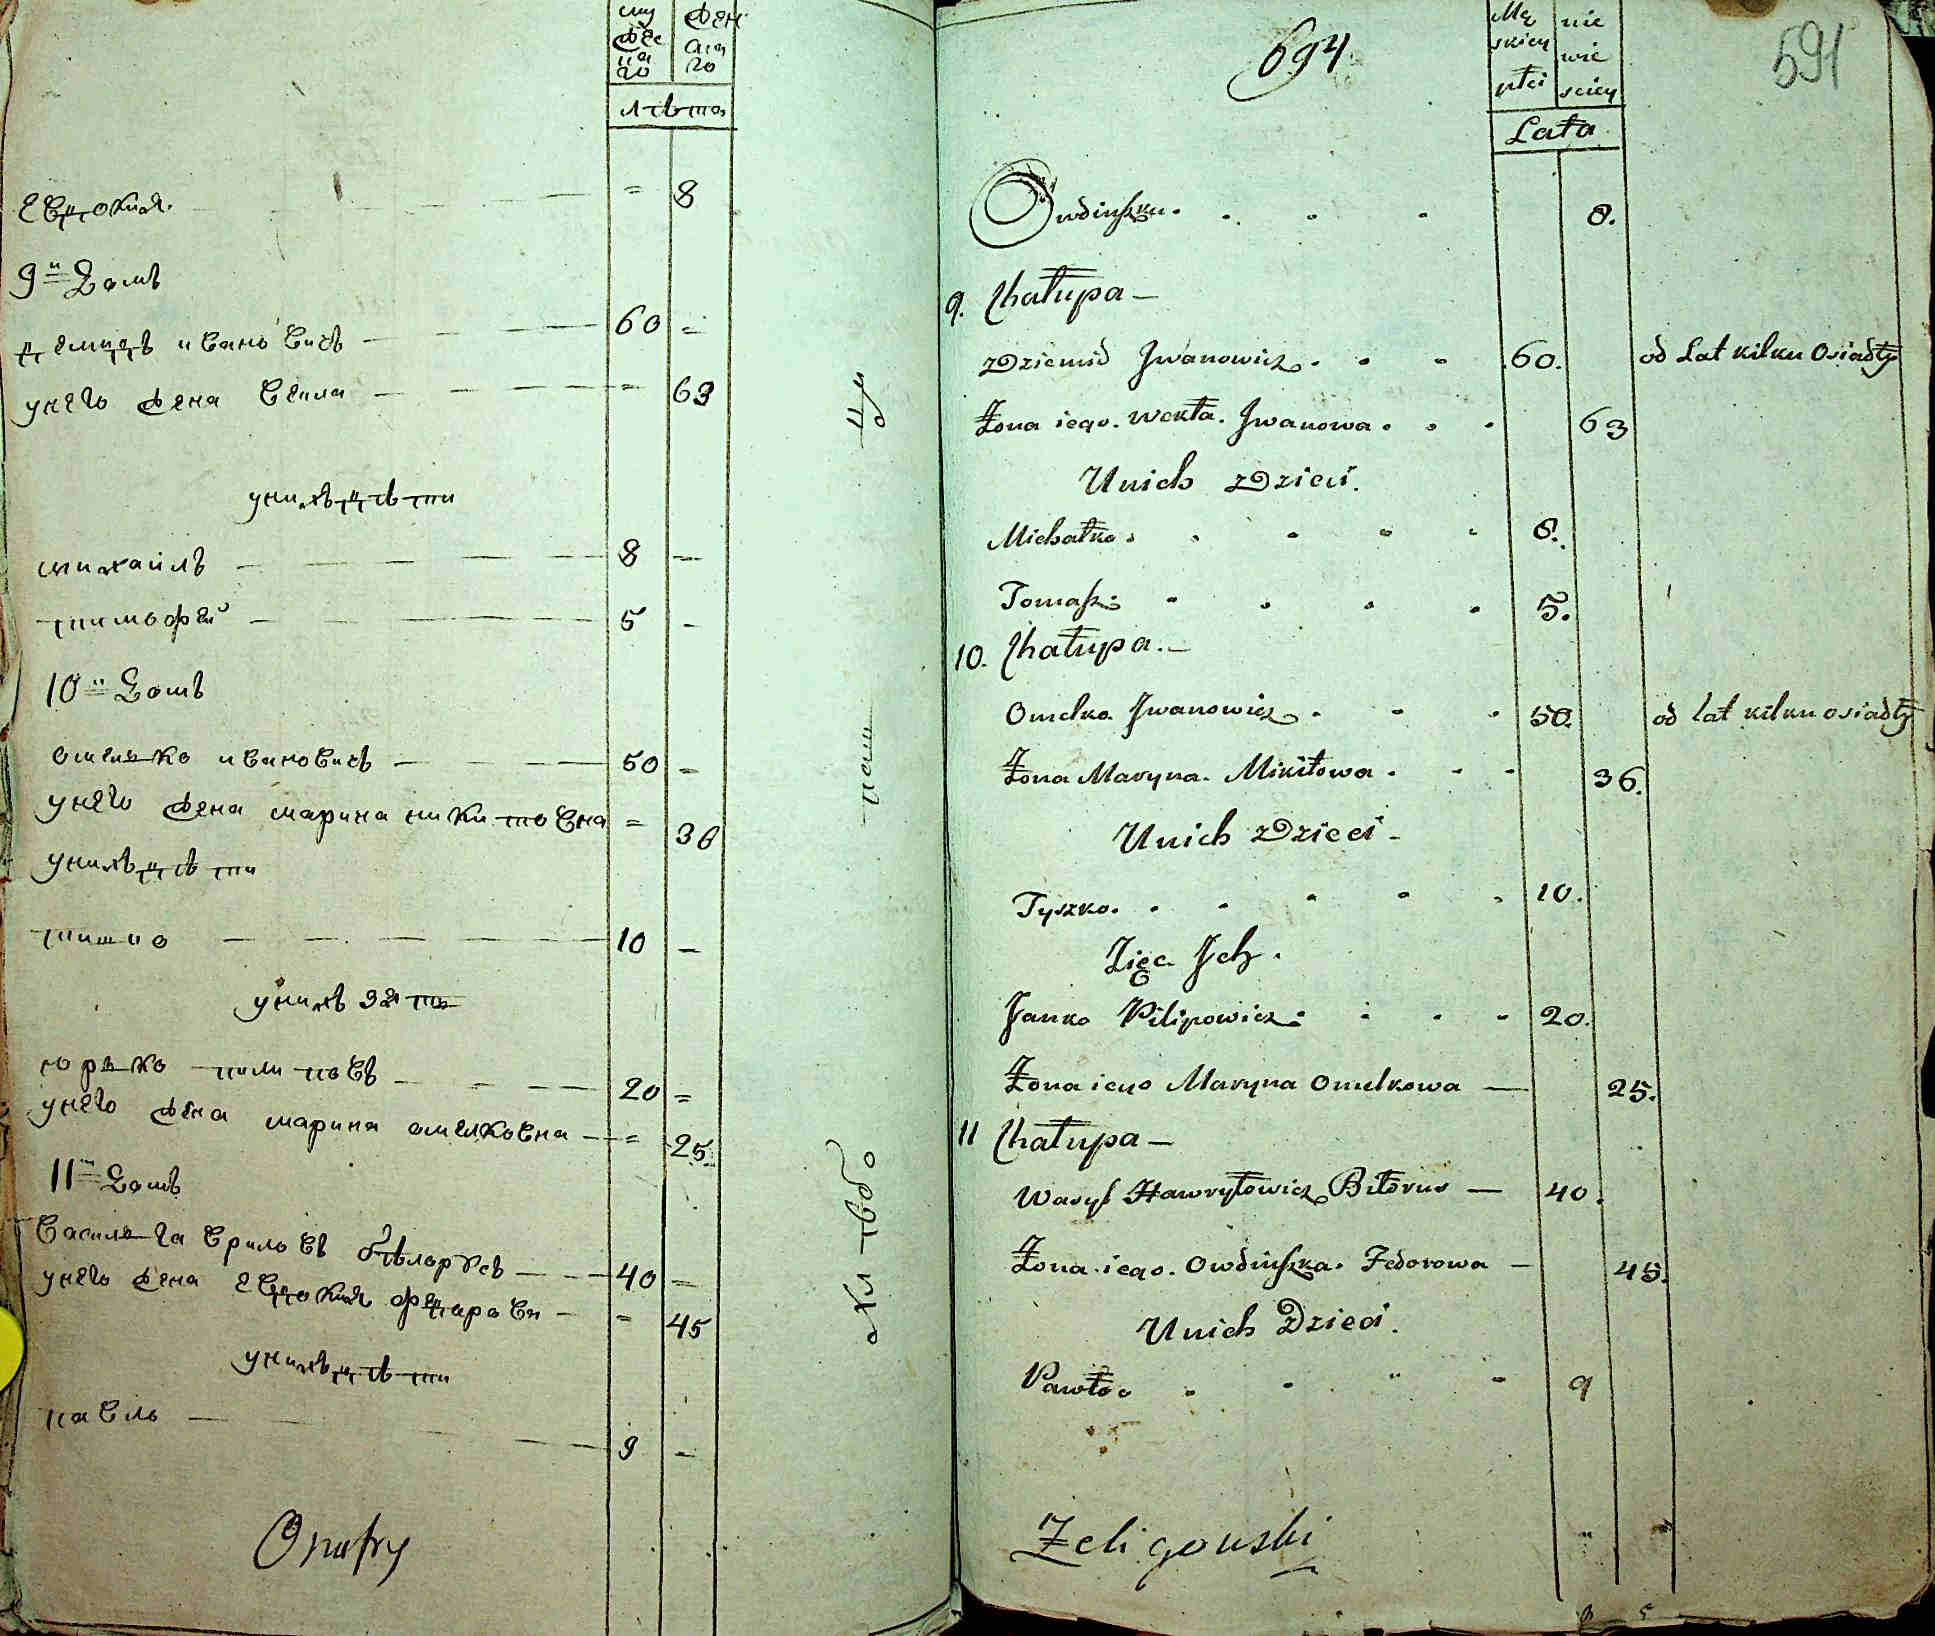 му
жес
ка
го
жен
ска
го
лѣта
евдокия 8
9й Домъ
демидъ ивановичъ 60
у него жена векла 63
у нихъ дѣти
михаилъ 8
тимофей 5
10й Домъ
омелько ивановичъ 50
у него жена марина никитовна 36
у нихъ дѣти
тишко 10
у нихъ зять
юрько пилиповъ 20
у него жена марина омелковна 25
11й Домъ
василь гавриловъ бѣлорусъ 40
у него жена евдокия федоровн 45
у нихъ дѣти
павлъ 9
Onufry
694
591
Mę
skiey
płci
nie
wie
sciey
Lata
Owdiuszka 8.
9. Chałupa
Dziemid Jwanowicz 60. od Lat kilku Osiadły
Żona iego. Wekła. Jwanowa 63
Unich Dzieci.
Michałko 8.
Tomasz 5.
10. Chałupa.
Omelko Jwanowicz 50. od lat kilku osiadły
Żona Maryna. Mikitowa 36.
Unich Dzieci
Tyszko 10.
Zięc Jch.
Janko Pilipowicz 20.
Żona iego Maryna Omelkowa 25.
11 Chałupa
Wasyl Hawryłowicz Biłorus 40.
Żona iego. Owdiuszka. Fedorowa 45.
Unich Dzieci.
Pawło 9
Żeligowski